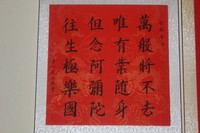 萬般將不去
唯有業隨身
但念阿彌陀
往生極樂國